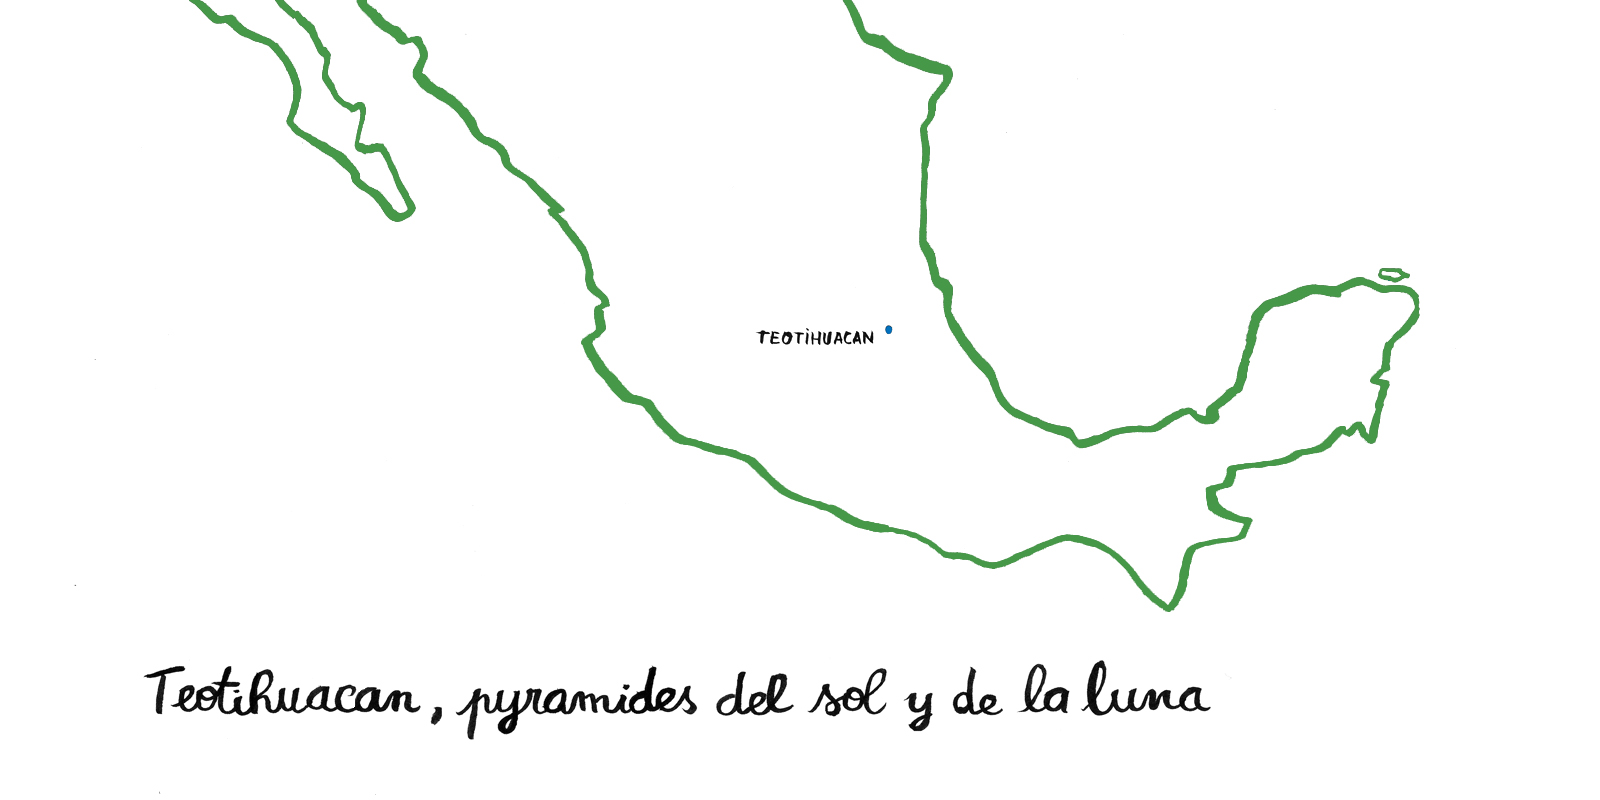 TEOTiHUACAN
Teotihuacan, pyramides del sol y de la luna